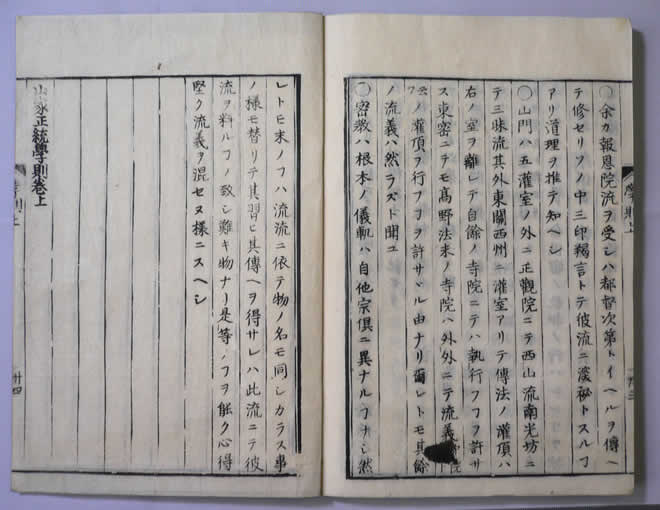 〇余カ報恩院流ヲ受シハ都督次第トイヘルヲ傳ヘ
テ修セリソノ中三印羯言トテ彼流ニ深祕トスルヿ
アリ道理ヲ推テ知ヘシ
〇山門ハ五灌室ノ外ニ正觀院ニテ西山流南光坊ニ
テ三昧流其外東關西州ニ灌室アリテ傳法ノ灌頂ハ
右ノ室ヲ離レテ自餘ノ寺院ニテハ執行フヿヲ許サ
ス東密ニテモ高野法来ノ寺院ハ外外ニテ流義
ノ灌頂ヲ行フヿヲ許サヽル由ナリ爾レトモ其餘
ノ流義ハ然ラズト聞ユ
〇密教ハ根本ノ儀軌ハ自他宗俱ニ異ナルヿナシ然
學則上
レトモ末ノヿハ流流ニ依テ物ノ名モ同シカラス事
ノ様モ替リテ其習ヒ其傳ヘヲ得サレハ此流ニテ彼
流ヲ料ルヿノ致シ難キ物ナリ是等ノヿヲ能ク心得
堅ク流義ヲ混セヌ様ニスヘシ
山家正統學則卷上
學則上
廿四